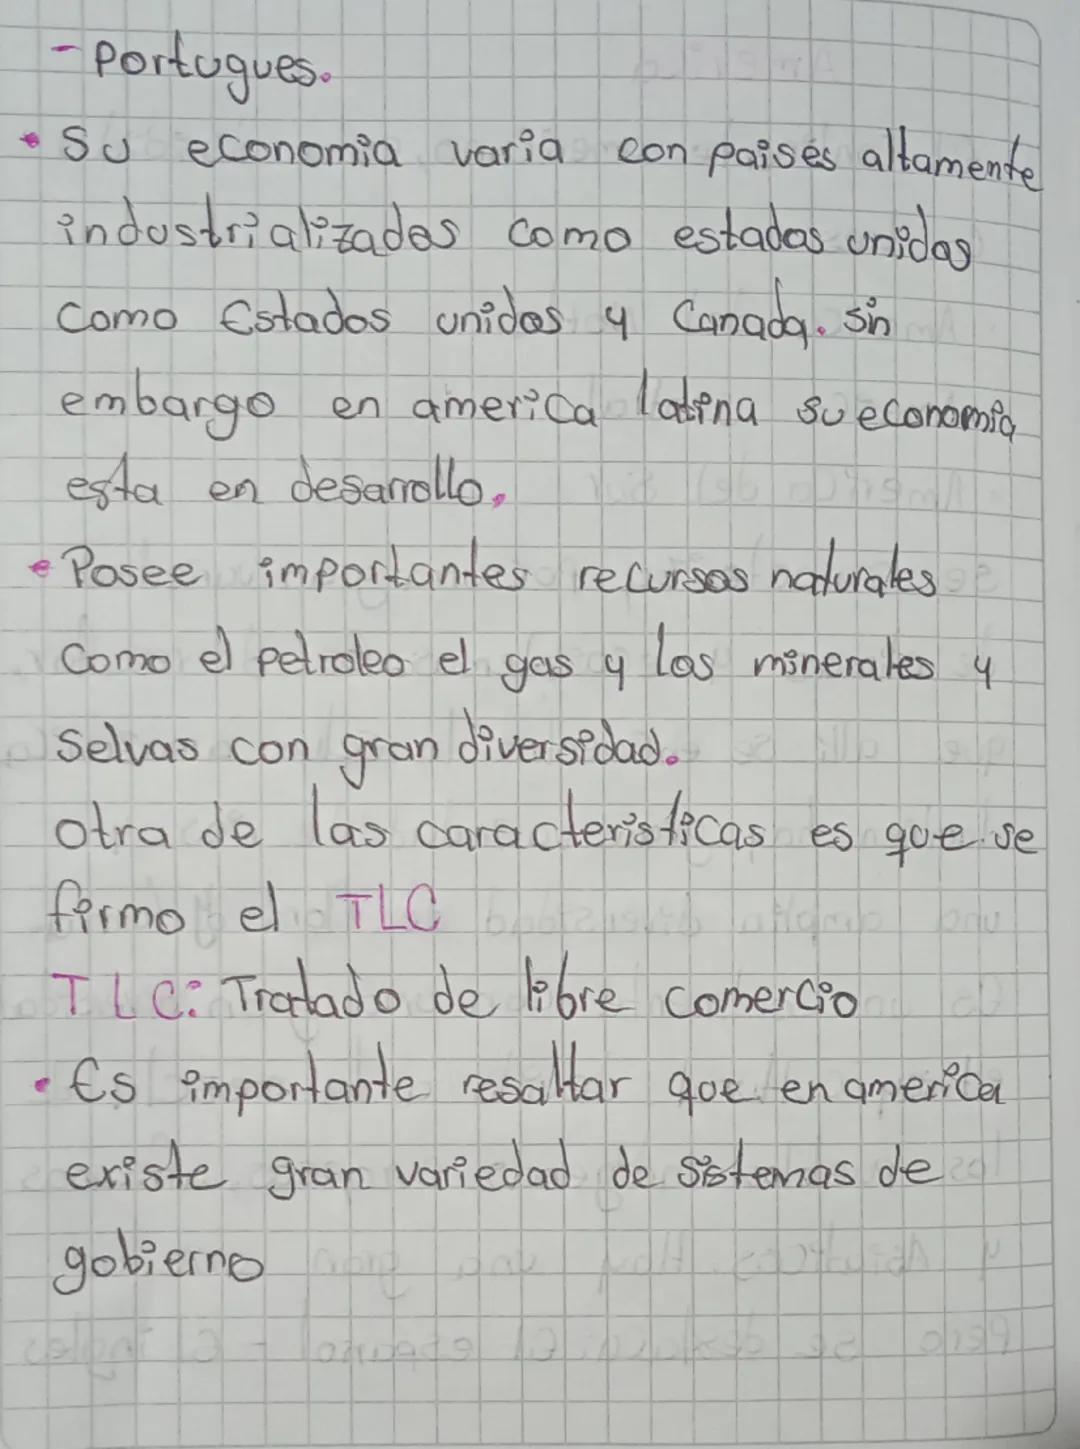 - Portugues.
• Su economia varia con paises altamente
industrializados como estados unidos
como Estados unidos y Canada. sin
embargo en america latina su economia
esta en desarrollo.
• Posee importantes recursos naturales
como el petroleo el gas y los minerales y
selvas con gran diversidad.
otra de las caracteristicas es que se
firmo el TLC
TLC: Tratado de libre comercio
• Es importante resaltar que en america
existe gran variedad de sistemas de
gobierno